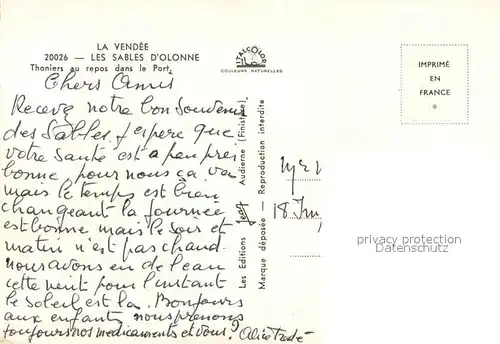 LA VENDÉE
20026 — LES SABLES D'OLONNE
Thoniers au repos dans le Port.
ITALCOLOR
COULEURS NATURELLES
IMPRIMÉ
EN
FRANCE
*
Chers Amis
Recevez notre bon souvenir
des Sables, j'espère que
votre santé est a peu près
bonne, pour nous ça va
mais le temps est bien
changeant la journée
est bonne mais le soir et
matin n'est pas chaud
nous avons eu de l'eau
cette nuit pour l'instant
le soleil est là. Bonjours
aux enfants nous prenons
toujours nos medicaments et vous? Alice
Les Editions Jack Audierne (Finistère)
Marque déposée — Reproduction interdite
18
privacy protection
Datenschutz